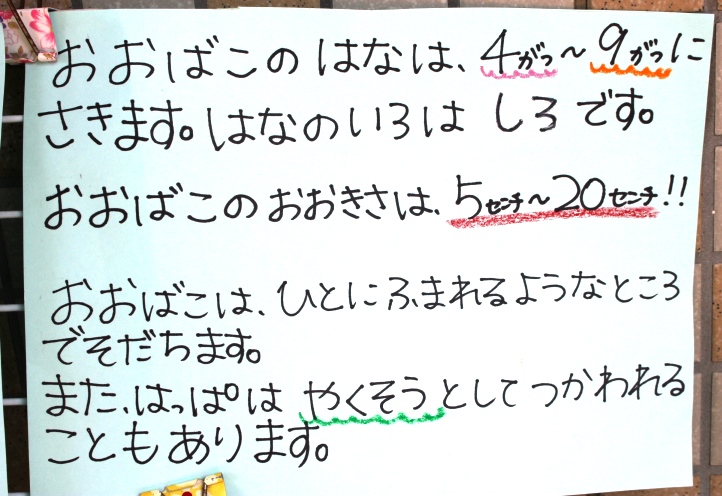 おおばこの はなは、4がつ〜9がつに
さきます。はなのいろは しろ です。
おおばこの おおきさは、5センチ〜20センチ!!
おおばこは、ひとにふまれるようなところ
でそだちます。
また、はっぱは やくそうとしてつかわれる
こともあります。